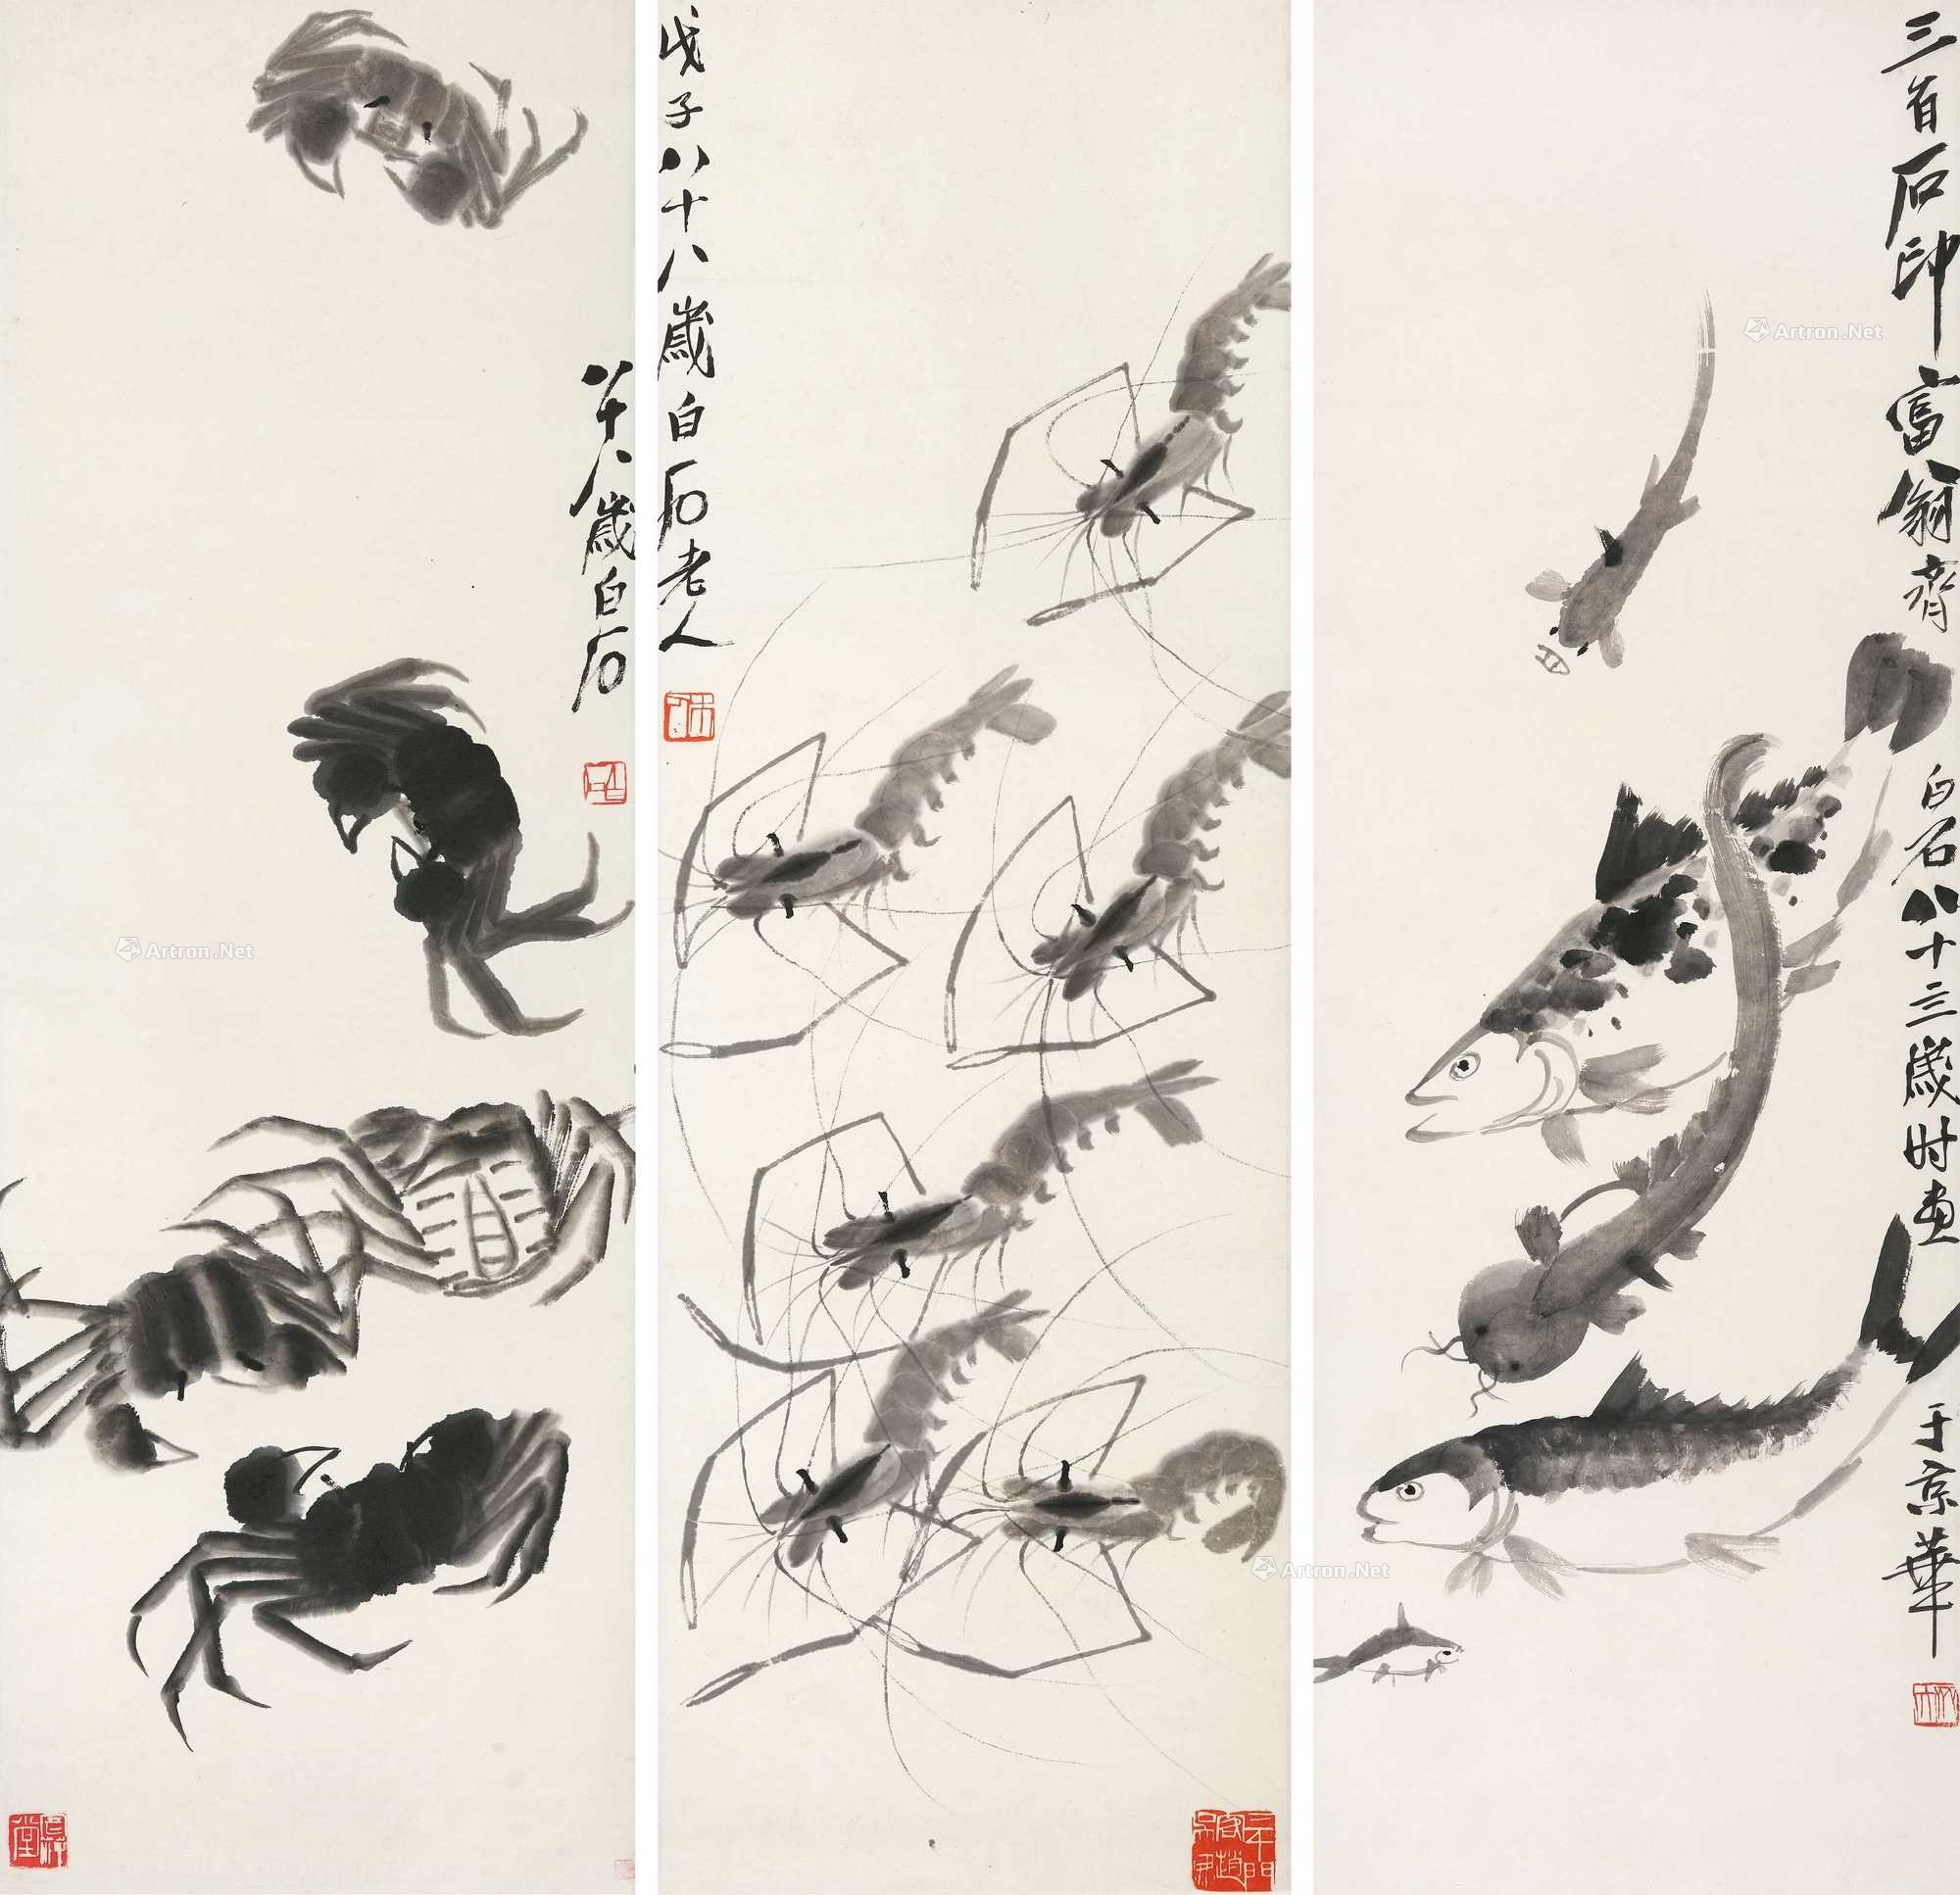 三百石印富翁齊白石八十三歲时畫于京華
戊子八十八歲白石老人
八十八歲白石
Artron.Net
Artron.Net
Artron.Net